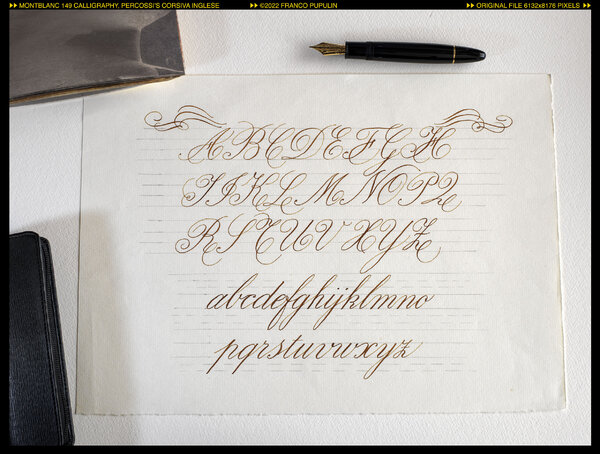 MONTBLANC 149 CALLIGRAPHY, PERCOSSI'S CORSIVA INGLESE
©2022 FRANCO PUPULIN
ORIGINAL FILE 6132x8176 PIXELS
A B C D E F G H
I J K L M N O P Q
R S T U V X Y Z
abcdefghijklmno
pqrstuvwxyz